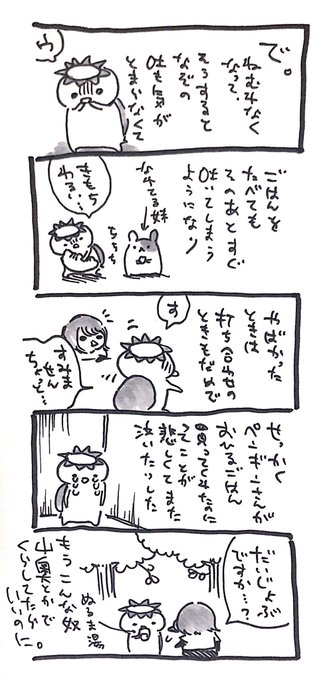 で。
ねむれなく
なって、
そうすると
なぞの
吐き気が
とまらなくて
ウ
ごはんを
たべても
そのあとすぐ
吐いてしまう
ようになり
なれてる妹
きもち
わる…
やばかった
ときは
打ち合わせの
ときもだめで
す
すみま
せん
ちょっと…
せっかく
ペンギンさんが
おひるごはん
買ってくれたのに
ってことが
悲しくてまた
泣いたりした
だいじょぶ
ですか…?
ぬるま湯
もうこんな奴
山奥とかで
くらしてたら
いいのに。